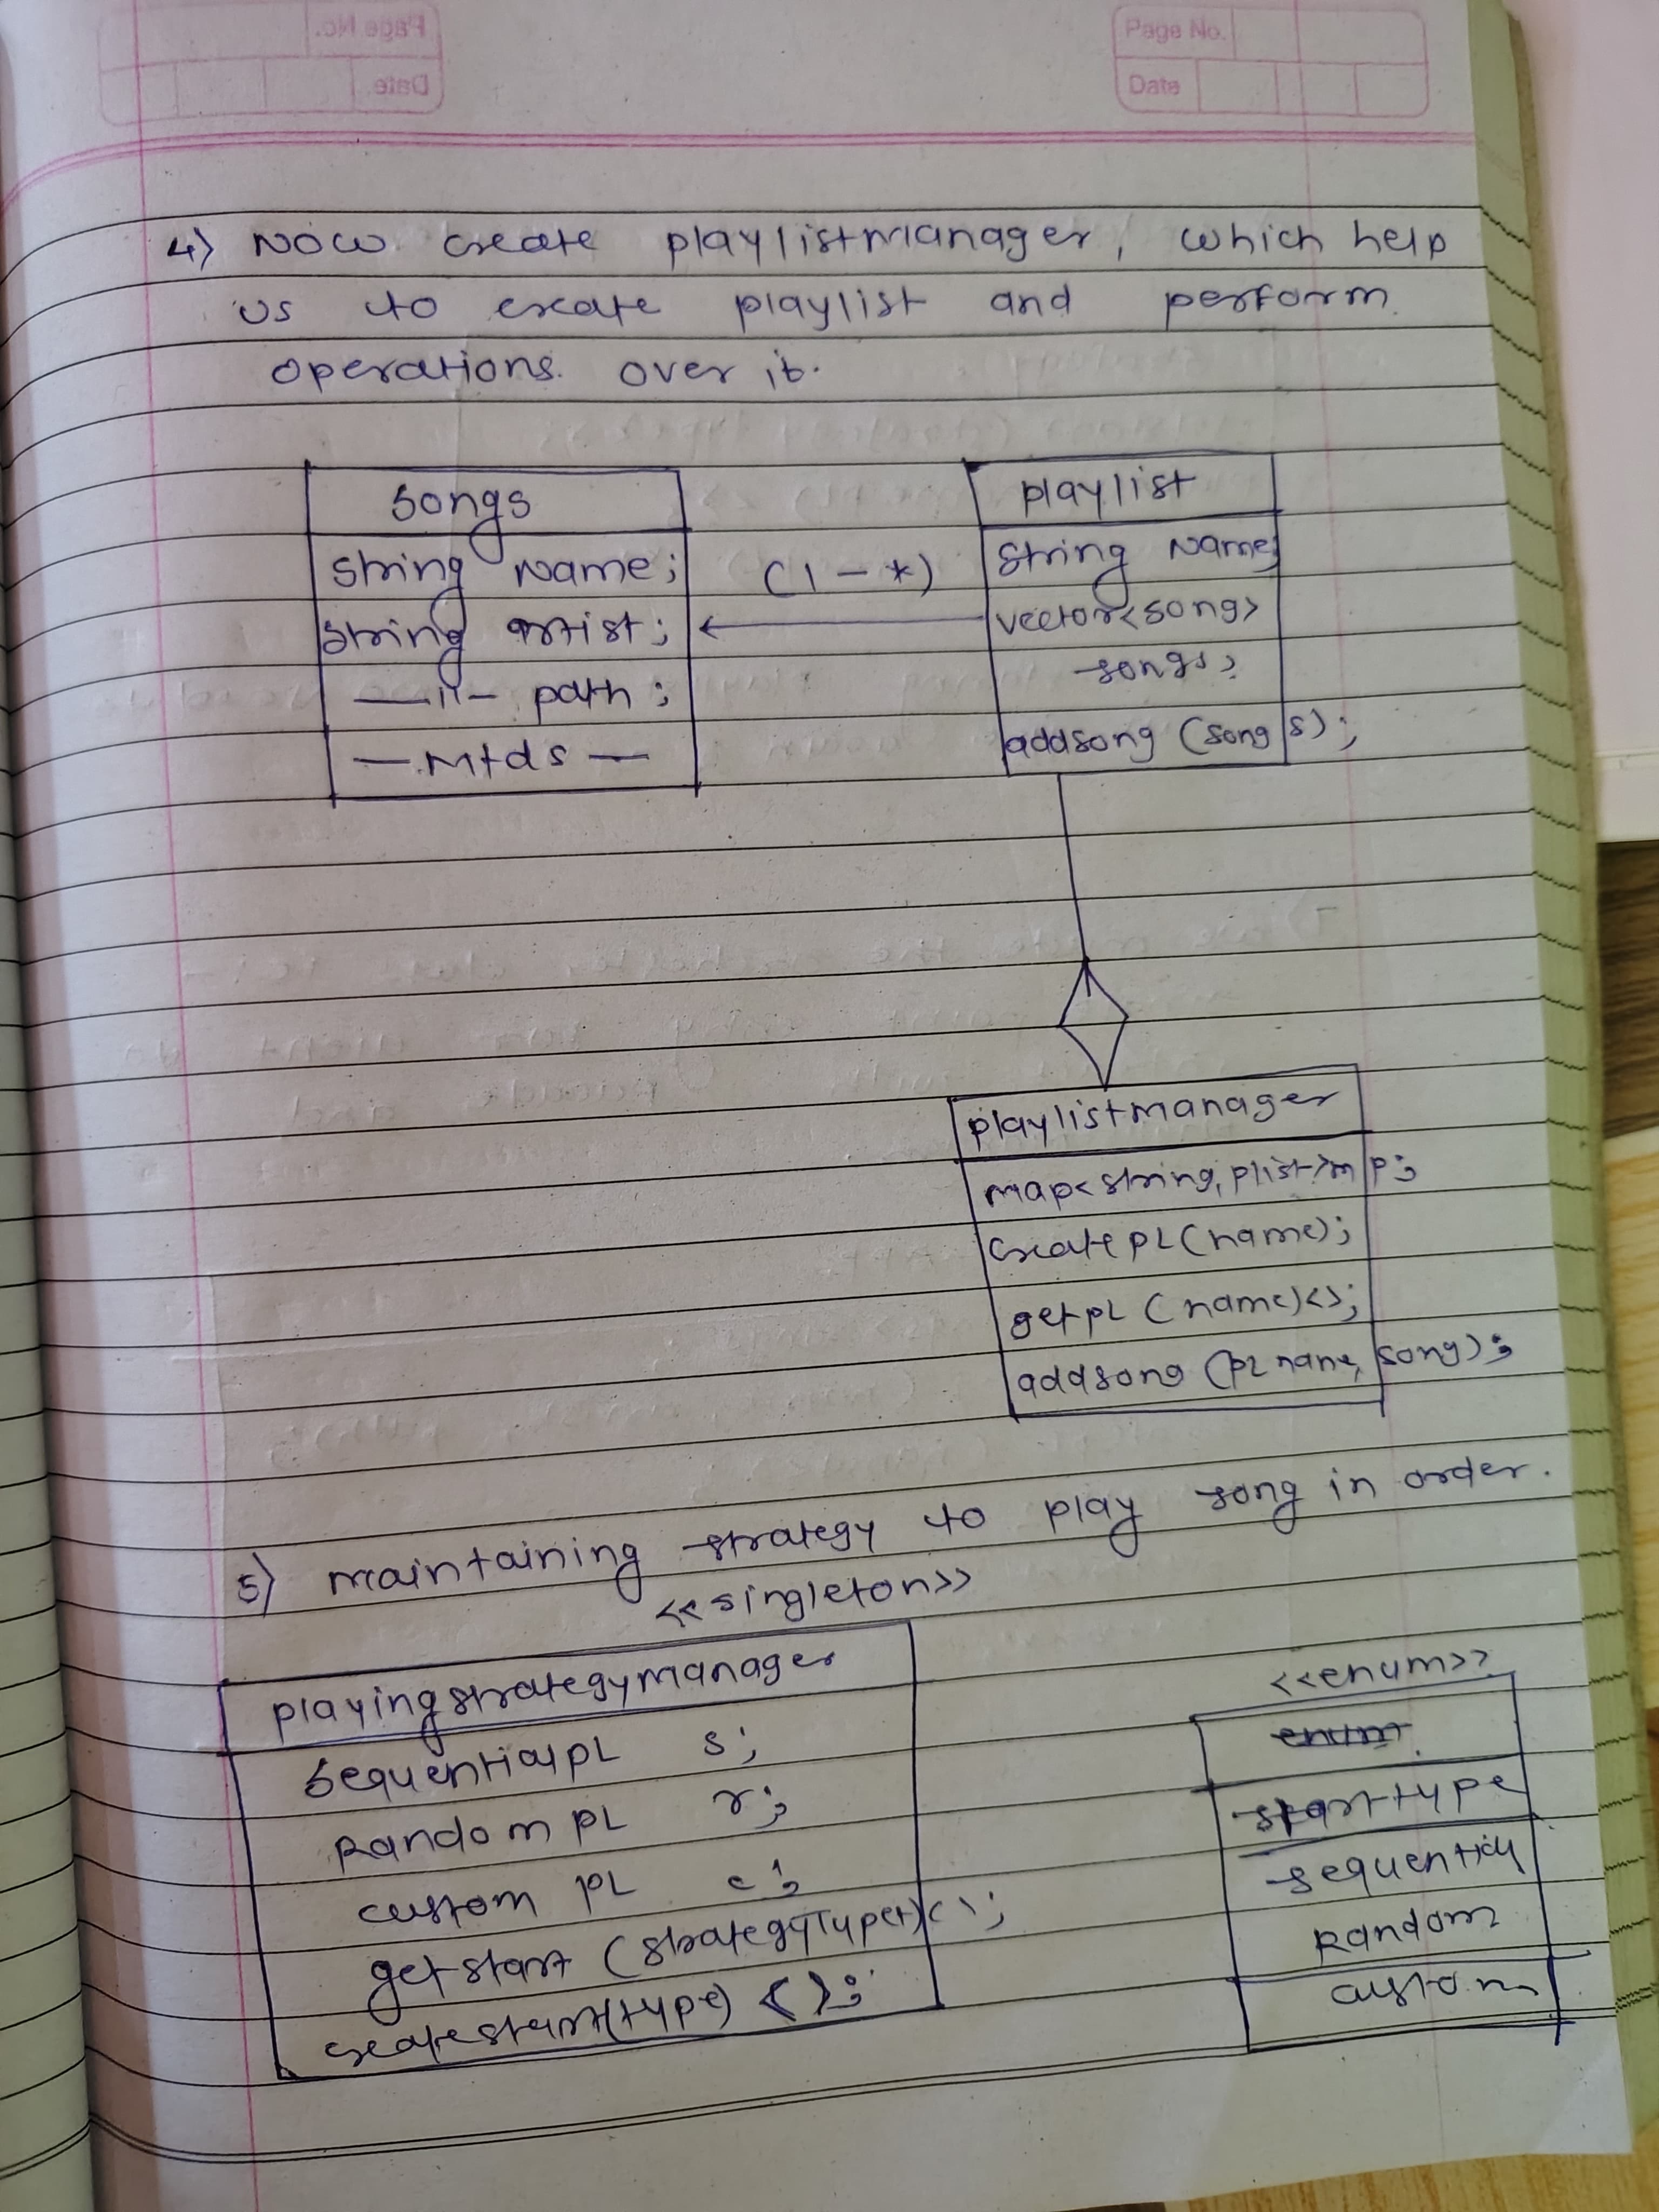 Page No.
Date
4) Now create playlistmanager, which help
us to create playlist and perform
operations over it.
Songs
string Name;
string artist;
—11— path;
— Mtds —
(1 — *)
playlist
string Name;
vector<song>
songs;
addsong (song s);
playlistmanager
map<string, plist> mp;
Create PL (name);
get PL (name)<>;
addsong (PL name, song);
5) maintaining strategy to play song in order.
<<singleton>>
playingstrategymanager
SequentialPL s;
Random PL r;
custom PL c;
getstart (strategyType t)< >;
createstart(type) < >;
<<enum>>
enum
starttype
sequential
Random
custom